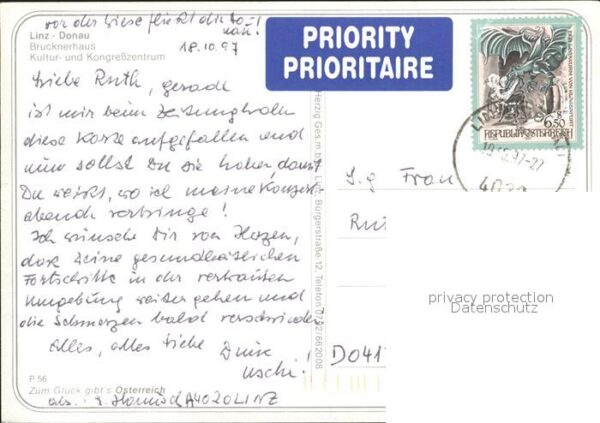 vor der Wiese fließt die Do-
nau!
Linz - Donau
Brucknerhaus
Kultur- und Kongreßzentrum
18.10.97
Liebe Ruth, gerade
ist mir beim Zeitungholen
diese Karte aufgefallen und
nun sollst Du sie haben, damit
Du weißt, wo ich meine Konzert-
abende verbringe!
Ich wünsche Dir von Herzen,
dass Deine gesundheitlichen
Fortschritte in der vertrauten
Umgebung weiter gehen und
die Schmerzen bald verschwinden!
Alles, alles Liebe Deine
Uschi!
P 56
Zum Glück gibt's Österreich
abs.: A4020 LINZ
Herzig Ges.m.b. Linz, Bürgerstraße 12, Telefon 0732/662008
PRIORITY
PRIORITAIRE
6.50
REPUBLIK ÖSTERREICH
-22
4020
S.g. Frau
Ru
D041
privacy protection
Datenschutz